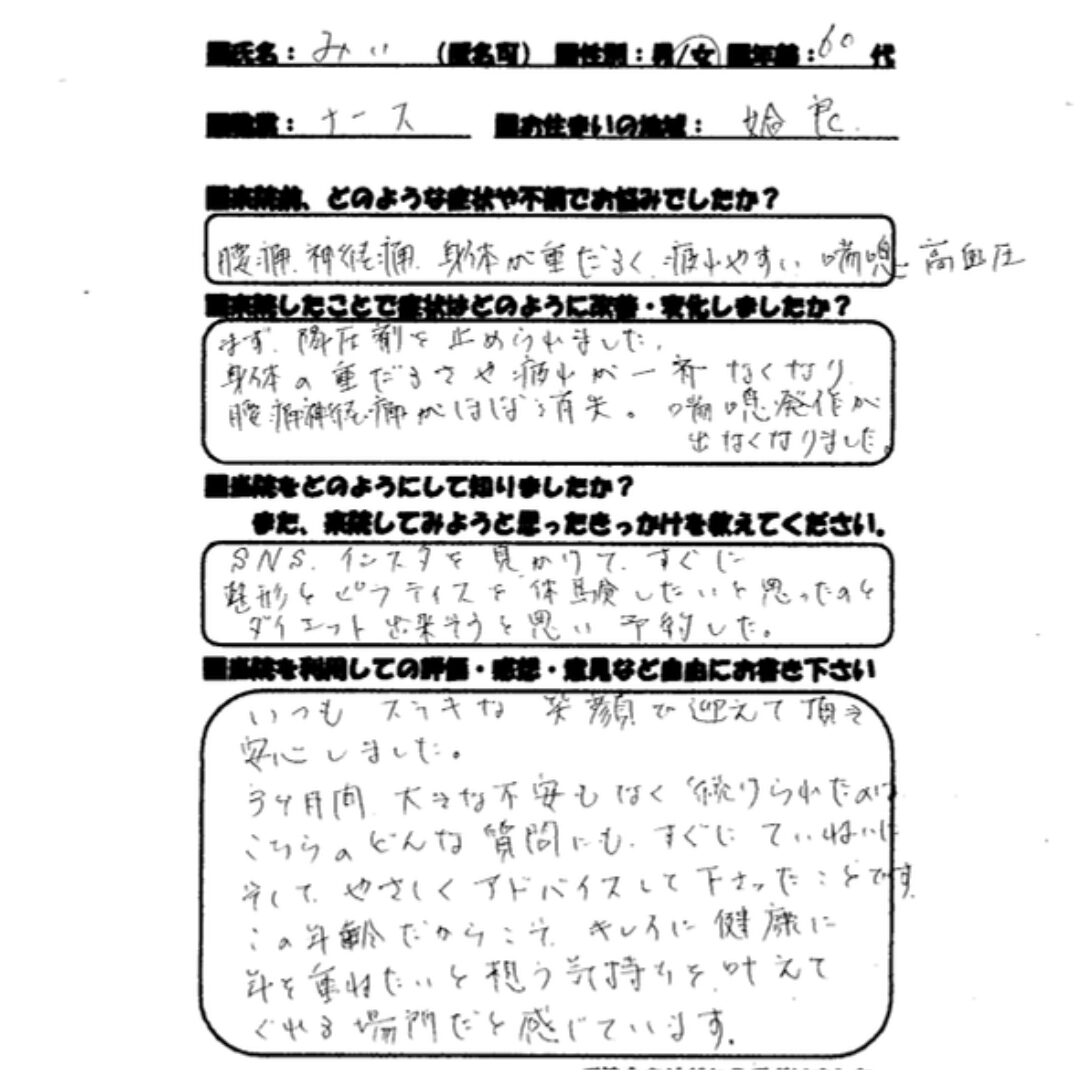 ■氏名：みい （匿名可） ■性別：男/女 ■年齢：60代
■職業：ナース ■お住まいの地域：姶良
■来院前、どのような症状や不調でお悩みでしたか？
腰痛、神経痛、身体が重だるく、疲れやすい 喘息、高血圧
■来院したことで症状はどのように改善・変化しましたか？
まず、降圧剤を止められました。
身体の重だるさや疲れが一斉なくなり、
腰痛神経痛がほぼ消失。喘息発作が
出なくなりました。
■当院をどのようにして知りましたか？
また、来院してみようと思ったきっかけを教えてください。
SNS、インスタを見かけて、すぐに
整形とピラティスを体験したいと思ったのと
ダイエット出来そうと思い予約した。
■当院を利用しての評価・感想・意見など自由にお書き下さい
いつも ステキな 笑顔で迎えて頂き
安心しました。
3ヶ月間、大きな不安もなく続けられたのは
こちらのどんな質問にも、すぐに ていねいに
そして、やさしくアドバイスして下さったことです。
この年齢だからこそ、キレイに健康に
年を重ねたいと想う気持ちを叶えて
くれる場所だと感じています。